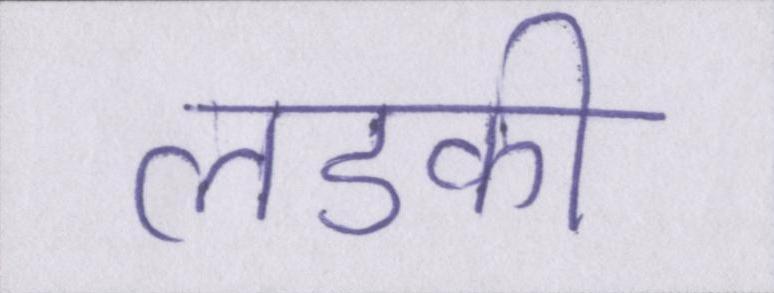 लडकी